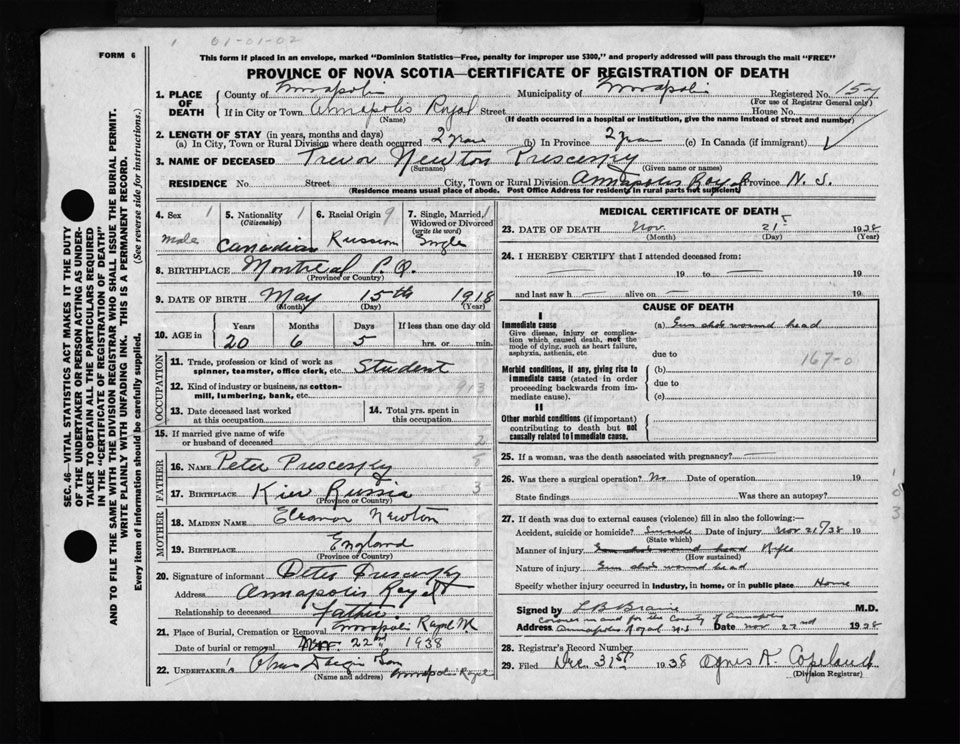 01-01-02
FORM 6
This form if placed in an envelope, marked "Dominion Statistics—Free, penalty for improper use $300," and properly addressed will pass through the mail "FREE"
PROVINCE OF NOVA SCOTIA—CERTIFICATE OF REGISTRATION OF DEATH
SEC. 46—VITAL STATISTICS ACT MAKES IT THE DUTY
OF THE UNDERTAKER OR PERSON ACTING AS UNDER-
TAKER TO OBTAIN ALL THE PARTICULARS REQUIRED
IN THE "CERTIFICATE OF REGISTRATION OF DEATH"
AND TO FILE THE SAME WITH THE DIVISION REGISTRAR WHO SHALL ISSUE THE BURIAL PERMIT.
WRITE PLAINLY WITH UNFADING INK. THIS IS A PERMANENT RECORD.
Every item of information should be carefully supplied. (See reverse side for instructions.)
1. PLACE OF DEATH
County of Annapolis Municipality of Annapolis Registered No. 157
(For use of Registrar General only)
If in City or Town Annapolis Royal Street House No.
(Name) (If death occurred in a hospital or institution, give the name instead of street and number)
2. LENGTH OF STAY (in years, months and days)
(a) In City, Town or Rural Division where death occurred 2 years (b) In Province 2 years (c) In Canada (if immigrant)
3. NAME OF DECEASED Trevor Newton Prescesky
(Surname) (Given name or names)
RESIDENCE No Street City, Town or Rural Division Annapolis Royal Province N. S.
(Residence means usual place of abode. Post Office Address for residents in rural parts not sufficient)
4. Sex 1 Male
5. Nationality 1 (Citizenship) Canadian
6. Racial Origin 9 Russian
7. Single, Married, Widowed or Divorced (write the word) Single
8. BIRTHPLACE Montreal P.Q.
(Province or Country)
9. DATE OF BIRTH May 15th 1918
(Month) (Day) (Year)
10. AGE in Years Months Days If less than one day old
20 6 5 hrs. or min.
OCCUPATION
11. Trade, profession or kind of work as spinner, teamster, office clerk, etc. Student
12. Kind of industry or business, as cotton-mill, lumbering, bank, etc. 913
13. Date deceased last worked at this occupation
14. Total yrs. spent in this occupation
15. If married give name of wife or husband of deceased
FATHER
16. NAME Peter Prescesky
17. BIRTHPLACE Kiev Russia
(Province or Country)
MOTHER
18. MAIDEN NAME Eleanor Newton
19. BIRTHPLACE England
(Province or Country)
20. Signature of informant Peter Prescesky
Address Annapolis Royal
Relationship to deceased Father
21. Place of Burial, Cremation or Removal Annapolis Royal
Date of burial or removal Nov. 22nd 1938
22. UNDERTAKER Annapolis Royal
(Name and address)
MEDICAL CERTIFICATE OF DEATH
23. DATE OF DEATH Nov. 21st 1938
(Month) (Day) (Year)
24. I HEREBY CERTIFY that I attended deceased from:
19 to 19
and last saw h alive on 19
CAUSE OF DEATH
I
Immediate cause
Give disease, injury or complication which caused death, not the mode of dying, such as heart failure, asphyxia, asthenia, etc
(a) Gun shot wound head
due to
167-0
Morbid conditions, if any, giving rise to immediate cause (stated in order proceeding backwards from immediate cause).
(b)
due to
(c)
II
Other morbid conditions (if important) contributing to death but not causally related to immediate cause.
25. If a woman, was the death associated with pregnancy?
26. Was there a surgical operation? No Date of operation 19
State findings Was there an autopsy?
27. If death was due to external causes (violence) fill in also the following:—
Accident, suicide or homicide? Suicide Date of injury Nov 21/38 19
(State which)
Manner of injury Gun shot wound head Rifle
(How sustained)
Nature of injury Gun shot wound head
Specify whether injury occurred in industry, in home, or in public place Home
Signed by L B Braine M.D.
Coroner in and for the County of Annapolis
Address Annapolis Royal N.S Date Nov 22nd 1938
28. Registrar's Record Number
29. Filed Dec. 31st 1938 Agnes K. Copeland
(Division Registrar)